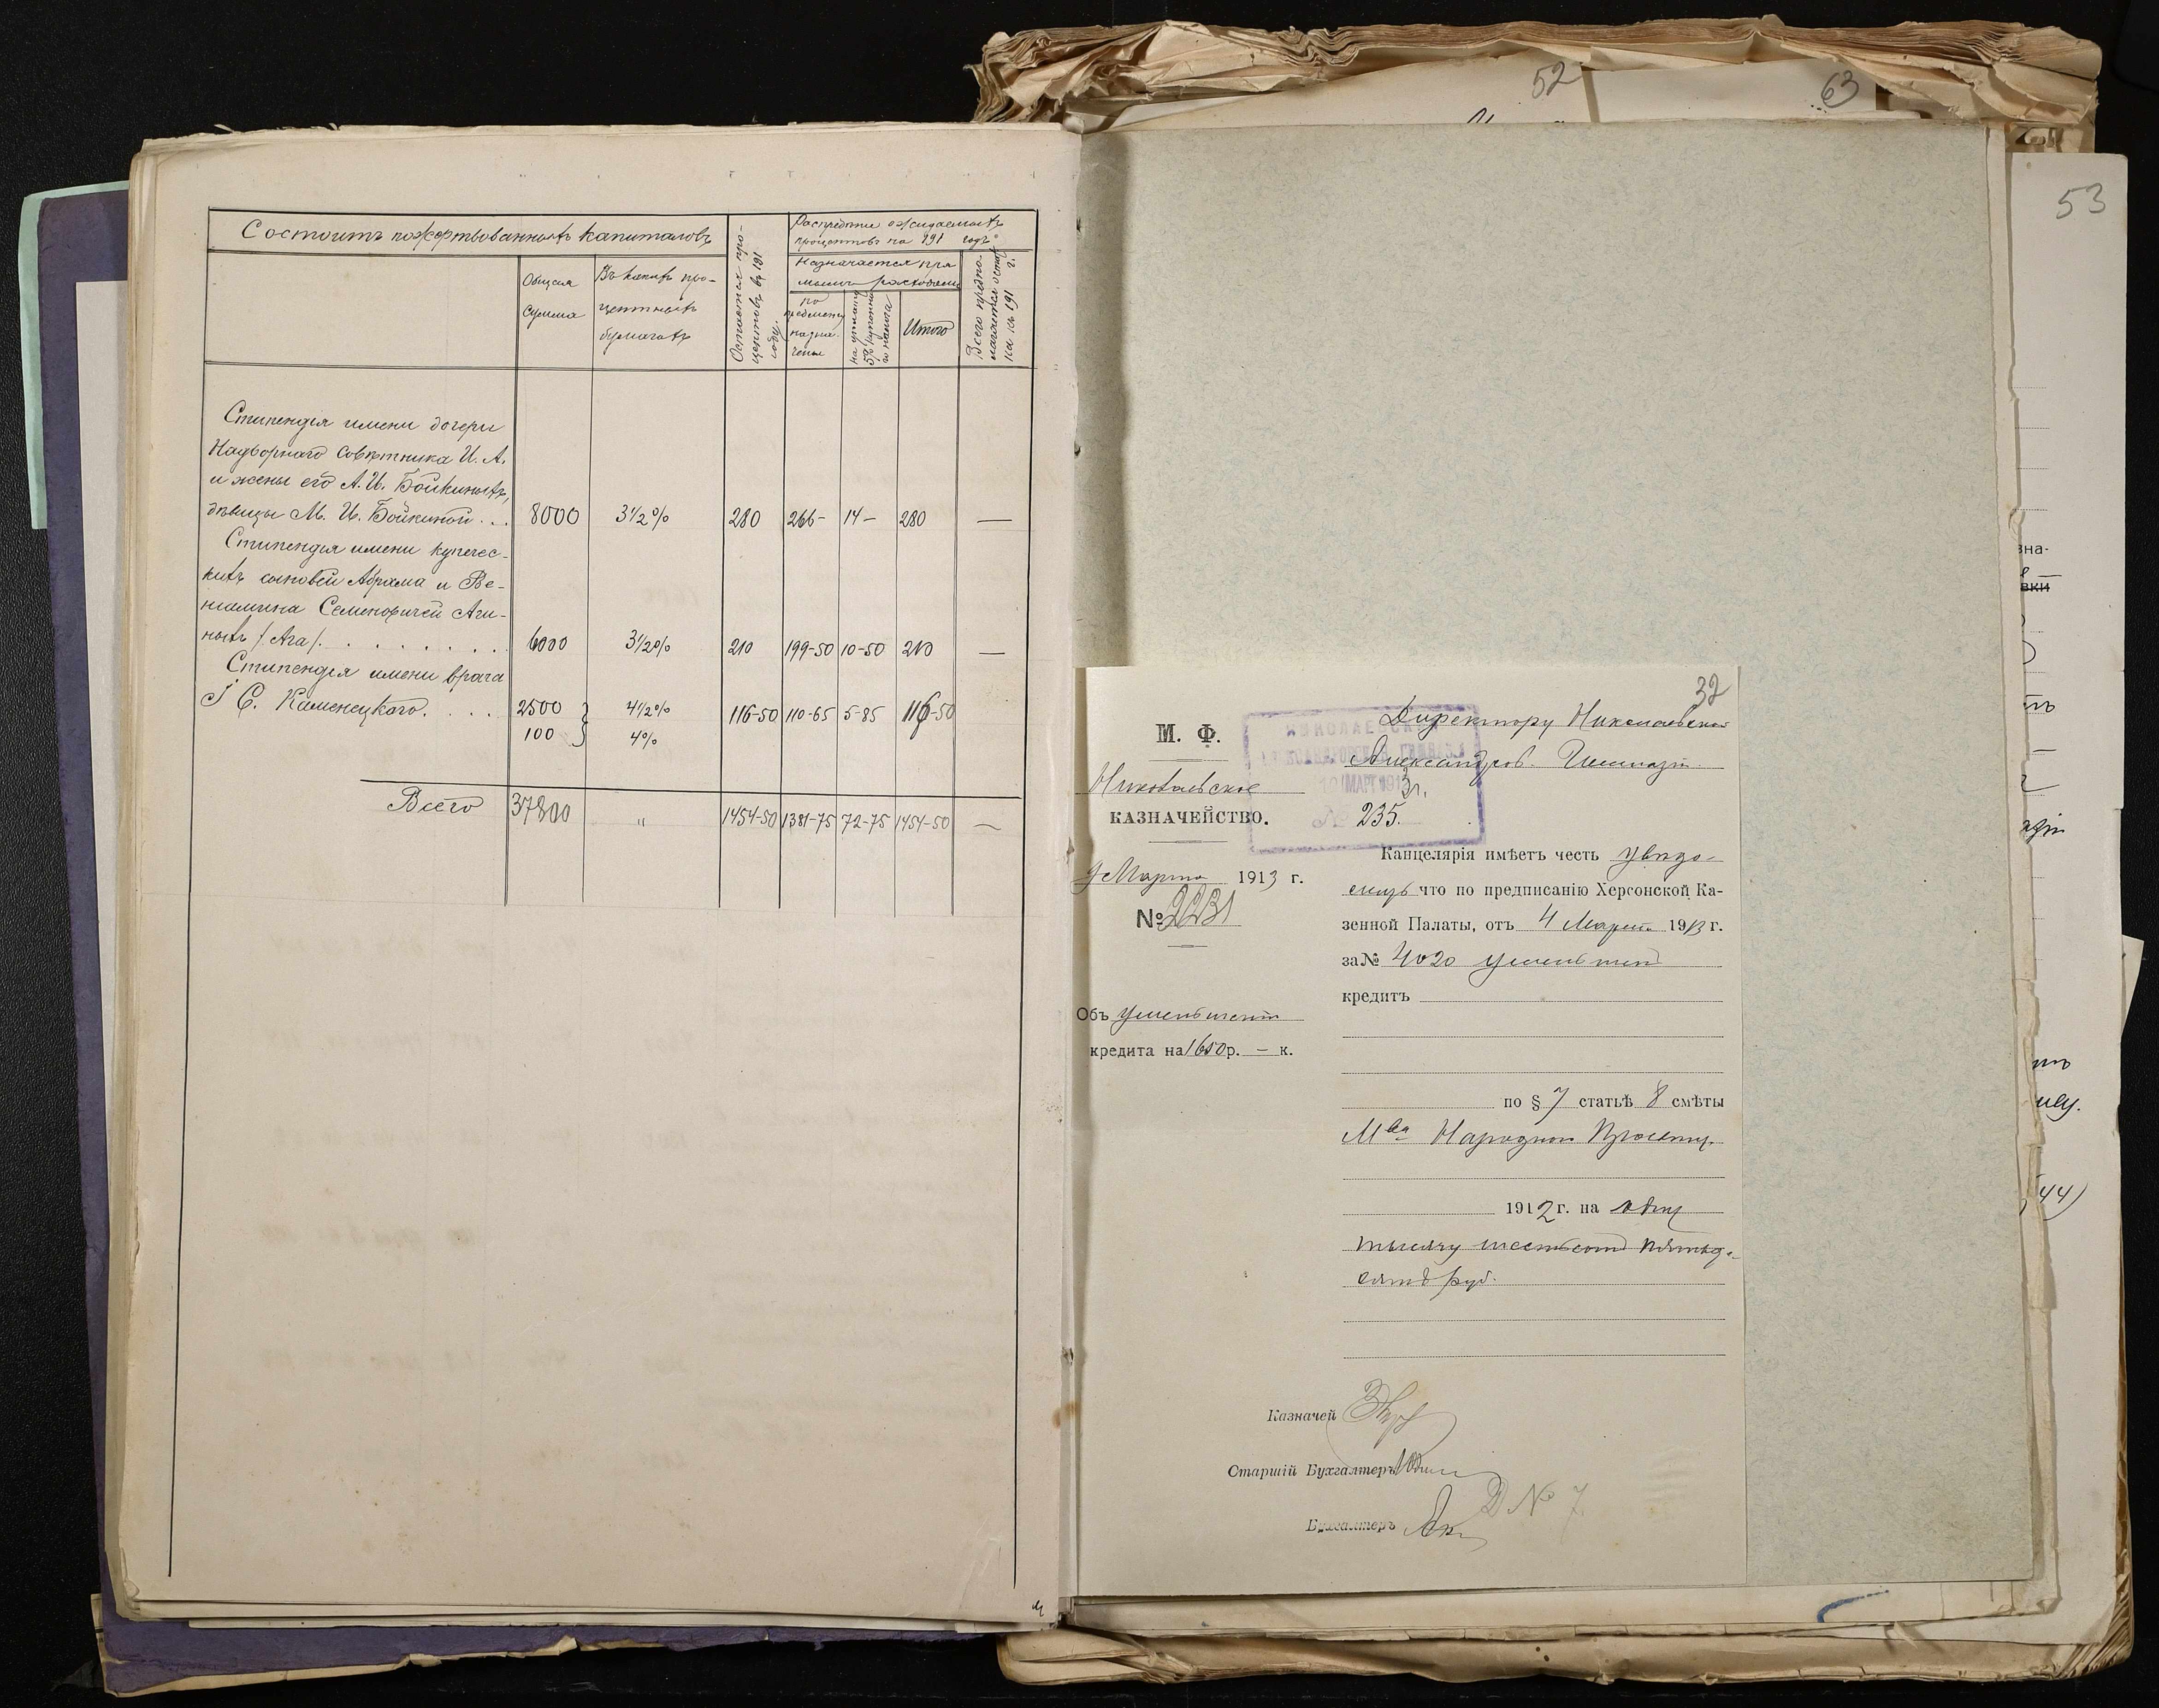 52
63
53
Состоитъ пожертвованныхъ капиталовъ
Общая
сумма
Въ какихъ про-
центныхъ
бумагахъ
Остается про-
центовъ въ 191
году.
процентовъ на 191 годъ
Назначается
расходами
по
назна-
ченiю
на
5%
налога
Итого
Всего предпо-
лагается
ка къ 191 г.
Стипендiя имени дочери
Надворнаго Совѣтника И. А.
и жены его А. И. Бойкиныхъ,
дѣвицы М. И. Бойкиной . . . 8000 3½% 280 266- 14- 280 —
Стипендiя имени купечес-
кихъ сыновей Абрама и Ве-
нiамина Семеновичей Аги-
ныхъ /Ага/ . . . . . . . . 6000 3½% 210 199-50 10-50 210 —
Стипендiя имени врача
I С. Каменецкаго. . . . 2500 4½% 116-50 110-65 5-85 116-50
100 4%
Всего 37800 " 1454-50 1381-75 72-75 1454-50 —
32
М. Ф.
Николаевское
КАЗНАЧЕЙСТВО.
9 Марта 1913 г.
№ 2231
Объ уменьшенiи
кредита на 1650 р. — к.
НИКОЛАЕВСКАЯ
АЛЕКСАНДРОВСКАЯ ГИМНАЗIЯ
10 МАР 1913 г.
№ 235.
Директору Николаевской
Александров. Гимназiи
Канцелярiя имѣетъ честь увѣдо-
мить что по предписанiю Херсонской Ка-
зенной Палаты, отъ 4 Марта 1913 г.
за № 4020 уменьшенъ
кредитъ
по § 7 статьѣ 8 смѣты
Мва Народнаго Просвѣщ.
1912 г. на одну
тысячу шестьсотъ пятьде-
сятъ руб.
Казначей
Старшiй Бухгалтеръ
Бухгалтеръ
Д № 7
зна-
вки
44)